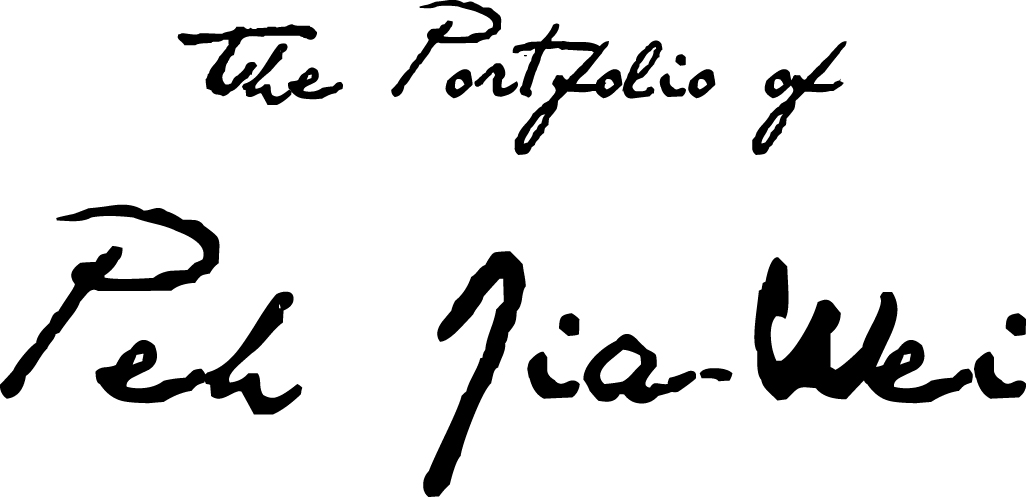 The Portfolio of
Peh Jia-Wei